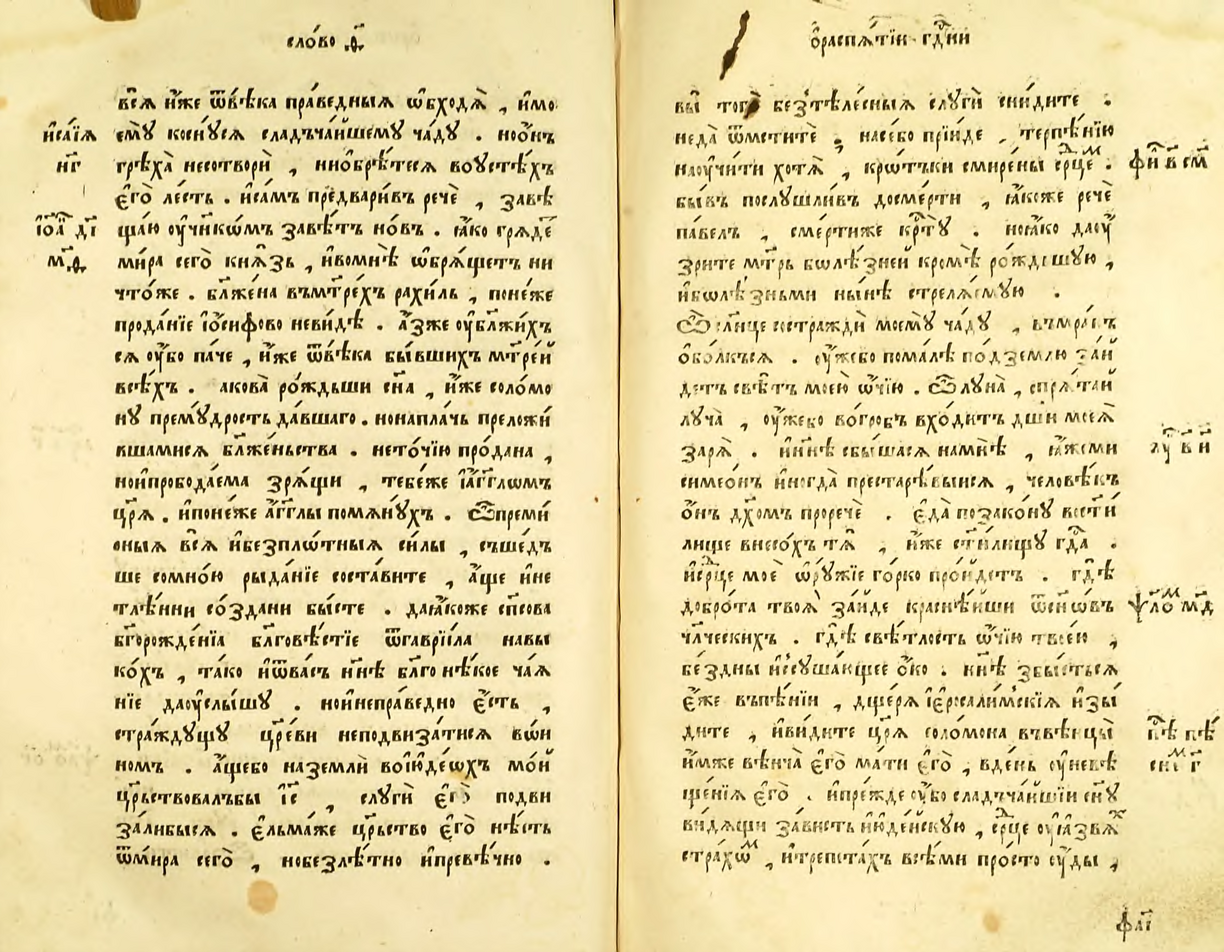 сло́во ѳ҃ı
всѧ̀ и҆́же ѿвѣ́ка пра́ведныѧ ѡ҆бходѧ̀ , и҆мо
и҆са́їѧ
є҆мꙋ̀ косни́ꙋсѧ сладъча́ишемꙋ ча́дꙋ . нοѻ҆́нъ
н҃г
грѣха̀ несотворѝ , нио҆брѣ́тесѧ воу҆стѣ́хъ
є҆гѡ̀ ле́сть . и҆са́мъ предвари́въ речѐ , завѣ
ща́ю оу҆чн҃кѡ́мъ завѣ́тъ но́въ . ꙗ҆́ко грѧде́
і҆оа́ дı҃
ми́ра сегѡ̀ кнѧ́зь , и҆вомнѣ̀ ѡ҆брѧ́щетъ ни
что́же . бл҃же́на въмт҃рехъ рахи́ль , поне́же
прода́нїе і҆о́сифово неви́дѣ . а҆́зже оу҆бл҃жи́хъ
сѧ оу҆́бо па́че , и҆́же ѿвѣ́ка бы́вшихъ мт҃рей
всѣ́хъ . акова̀ ро́ждьши сн҃а , и҆́же соло́мо
нꙋ премꙋ́дрость да́вшаго . нонапла́чь преложи́
вшамисѧ бл҃же́ньства . нето́чїю про́дана ,
нои҆пробода́ема зрѧ́щи , тебе́же і҆а҆́гг҃лωмъ
цр҃ѧ̀ . и҆поне́же а҆́гг҃лы помѧнꙋ́хъ . ѽпреми́
рныѧ всѧ̀ и҆безпло́тныѧ си́лы , съше́дъ
ше сомно́ю рыда́нїе соста́вите , а҆́ще и҆не
тлѣ́нни со́здани бы́сте . даꙗ҆́коже сп҃сова
бг҃орожде́нїѧ бл҃говѣ́стїе ѿгаврїи́ла навы
ко́хъ , та́ко и҆ѿва́съ нн҃ѣ бл҃го нѣ́кое ча́ѧ
нїе даоу҆слы́шꙋ . нои҆непра́ведно є҆́сть ,
стра́ждꙋщꙋ цр҃е́ви неподвиза́тисѧ во́и
номъ . а҆́щебо наземлѝ вои҆ю҆де́ѡхъ мо́й
цр҃ьствовалъбы і҆с҃ , слꙋгѝ є҆гѡ̀ подви
за́либысѧ . є҆льма́же цр҃ьство є҆гѡ̀ нѣ́сть
ѿми́ра сегѡ̀ , нобезлѣ́тно и҆превѣ́чно .
ѻ҆распѧ́тїи гд҃ни
вы̀ тогѡ̀ безътѣле́сныѧ слꙋгѝ сни́дите .
неда̀ ѿмститѐ , насе́бо прїи́де , терпѣ́нїю
наоу҆чи́ти хотѧ̀ , кро́тъки смире́ны ср҃це .
бы́въ послꙋшли́въ досме́рти , ꙗ҆́коже речѐ
па́велъ , сме́ртиже кр҃тꙋ . ноꙗ҆́ко даоу҆
зрите мт҃рь болѣ́зней кромѣ̀ ро́ждьшꙋю ,
и҆болѣ́зньми ны́нѣ стрелѧ́емꙋю .
ѽ сл҃нце сстраждѝ моемꙋ̀ ча́дꙋ , въмра́къ
ѻ҆бо́лкъсѧ . оу҆же́бо пома́лѣ по́дземлю за́й
детъ свѣ́тъ моею̀ ѡ҆́чїю . ѽлꙋна̀ , спрѧ́тай
лꙋча̀ , оу҆же́бо во́гробъ вхо́дитъ дш҃и моеѧ̀
зарѧ̀ . нн҃ѣ сбы́шасѧ намнѣ̀ , ꙗ҆́жеми
симео́нъ и҆ногда̀ престарѣ́выисѧ , человѣ́къ
ѻ҆́нъ дх҃омъ проречѐ . є҆да̀ позако́нꙋ вости́
лище внесо́хъ тѧ̀ , и҆́же ст҃и́лищꙋ гд҃а .
и҆ср҃це моѐ ѡ҆рꙋ́жїе го́рко про́йдетъ . гдѣ̀
добро́та твоѧ̀ за́йде краснѣ́йши ѿсн҃ѡ́въ
чл҃ческихъ . гдѣ̀ свѣ́тлость ѡ҆́чїю твоє́ю ,
бе́здны и҆ссꙋша́ющее ѻ҆́ко . нн҃ѣ збы́стьсѧ
є҆́же въпѣ́нїи , дще́рѧ і҆єр҃сали́мскїѧ и҆зы
дите , и҆ви́дите цр҃ѧ̀ соломо́на въвѣ́нцы
и҆́мже вѣнча̀ є҆гѡ̀ ма́ти є҆гѡ̀ , вде́нь оу҆невѣ
ще́нїѧ є҆гѡ̀ . и҆пре́жде оу҆́бо сладъча́йшїи сн҃ꙋ
ви́дѧщи за́висть і҆ю҆де́йскꙋю , ср҃це оу҆ꙗ҆звѧ́
стра́хом , и҆трепета́хъ всѣ́ми про́сто сꙋ́ды ,